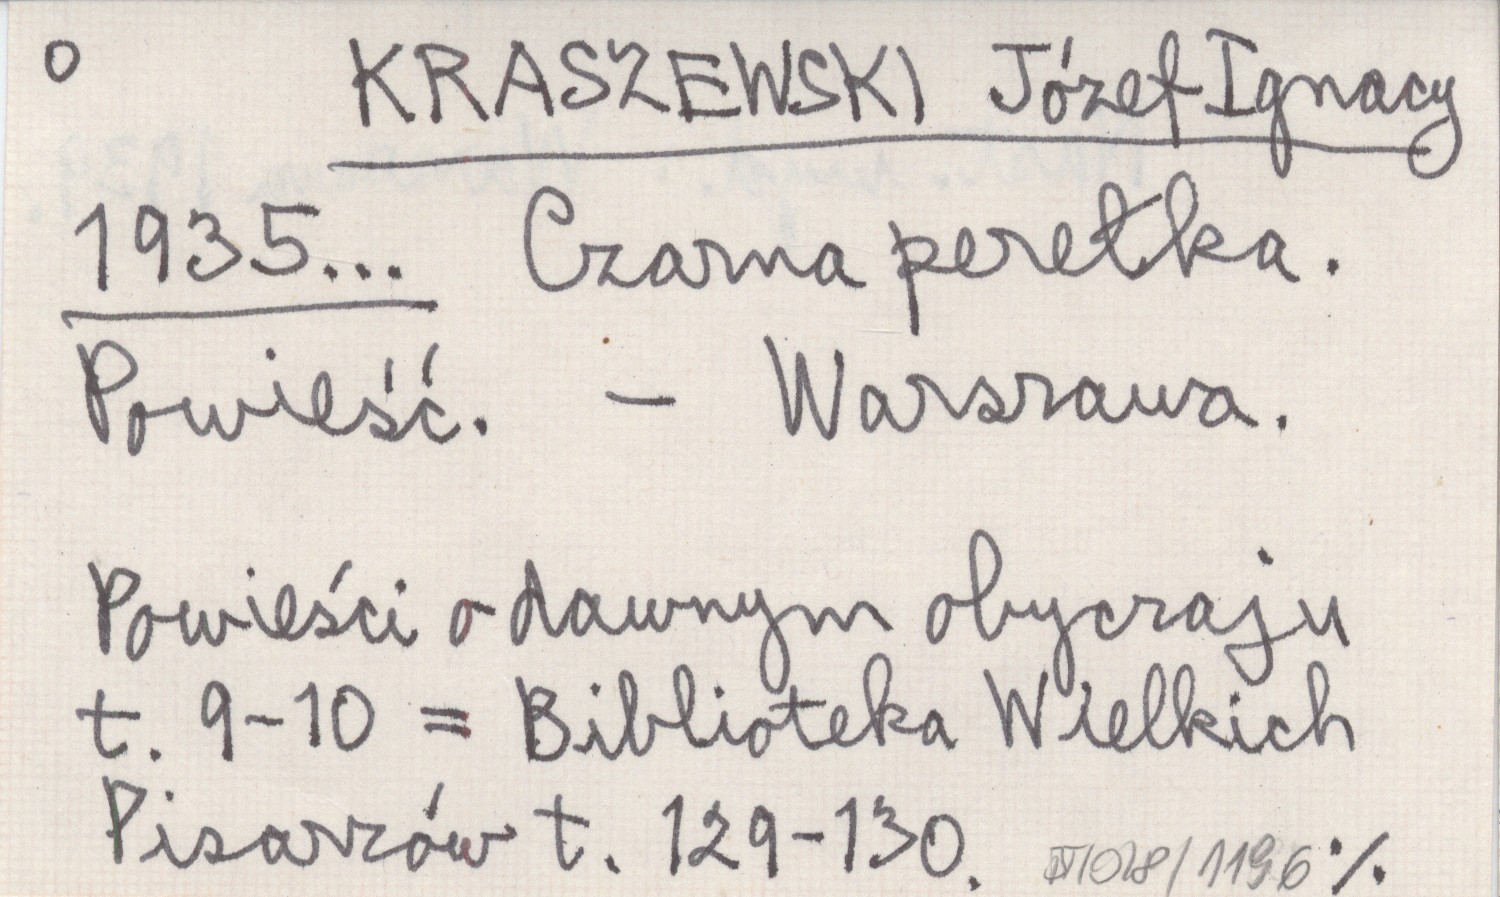 O KRASZEWSKI Józef Ignacy
1935... Czarna perełka.
Powieść. - Warszawa.
Powieści o dawnym obyczaju
t. 9-10 = Biblioteka Wielkich
Pisarzów t. 129-130.
/1196 %